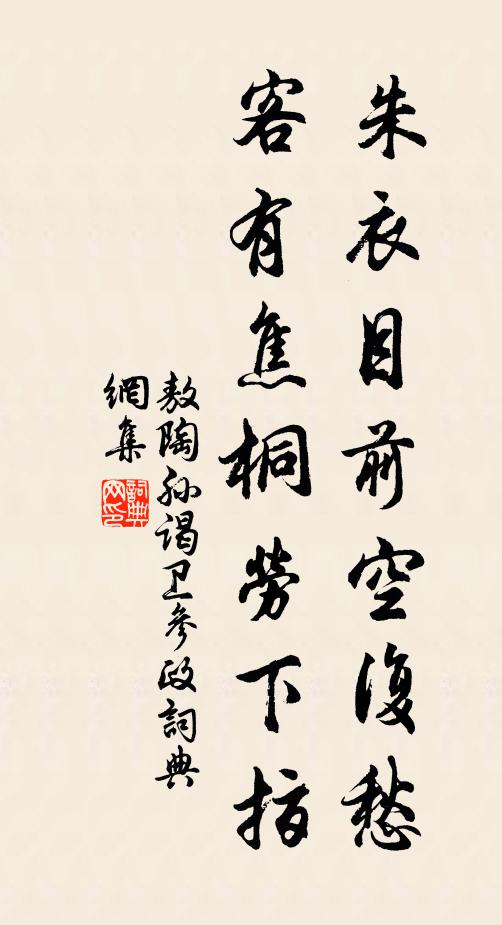 朱衣目前空復愁
客有焦桐勞下指
敖陶孙謁卫參政詞典
網集
詞典網印